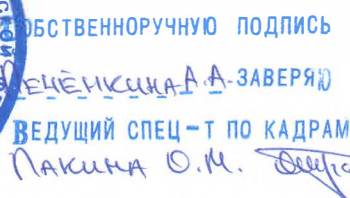 СОБСТВЕННОРУЧНУЮ ПОДПИСЬ
Печёнкина А.А. ЗАВЕРЯЮ
ВЕДУЩИЙ СПЕЦ-Т ПО КАДРАМ
Лакина О.М.